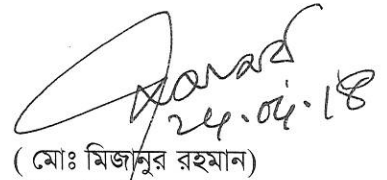 24.04.18
( মোঃ মিজানুর রহমান)